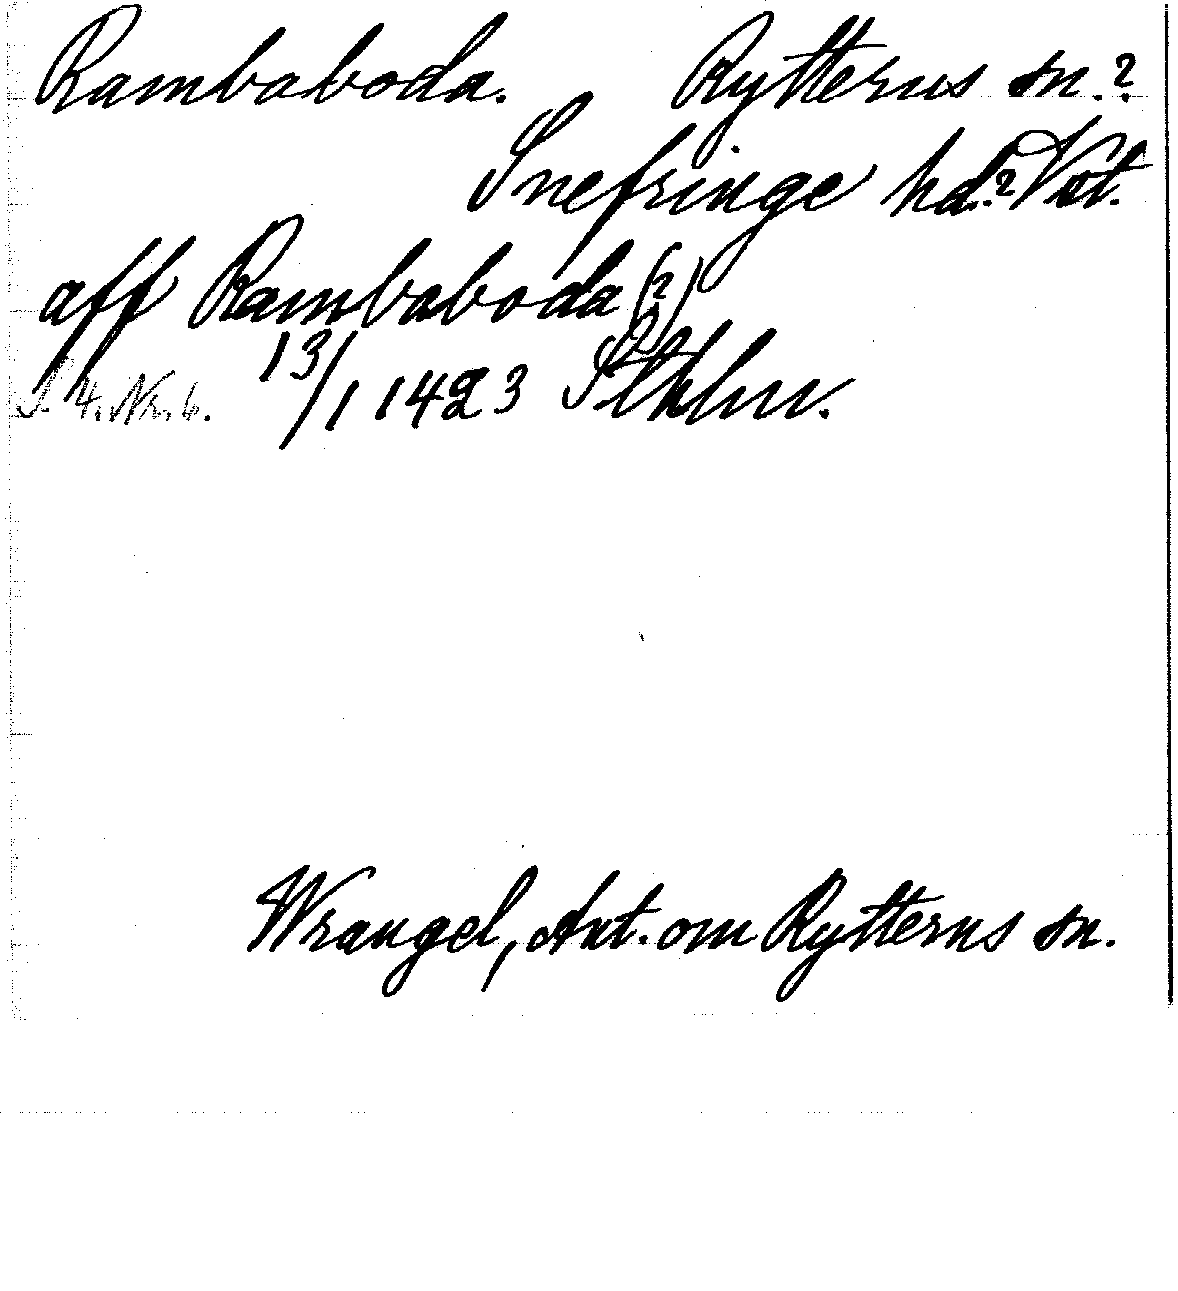 Rambaboda. Rytterns sn.?
Snefringe hd.? Vstl.
aff Rambaboda (?)
S. 4. Nr. 6. 13/1 1423 Sthlm.
Wrangel, Ant. om Rytterns sn.